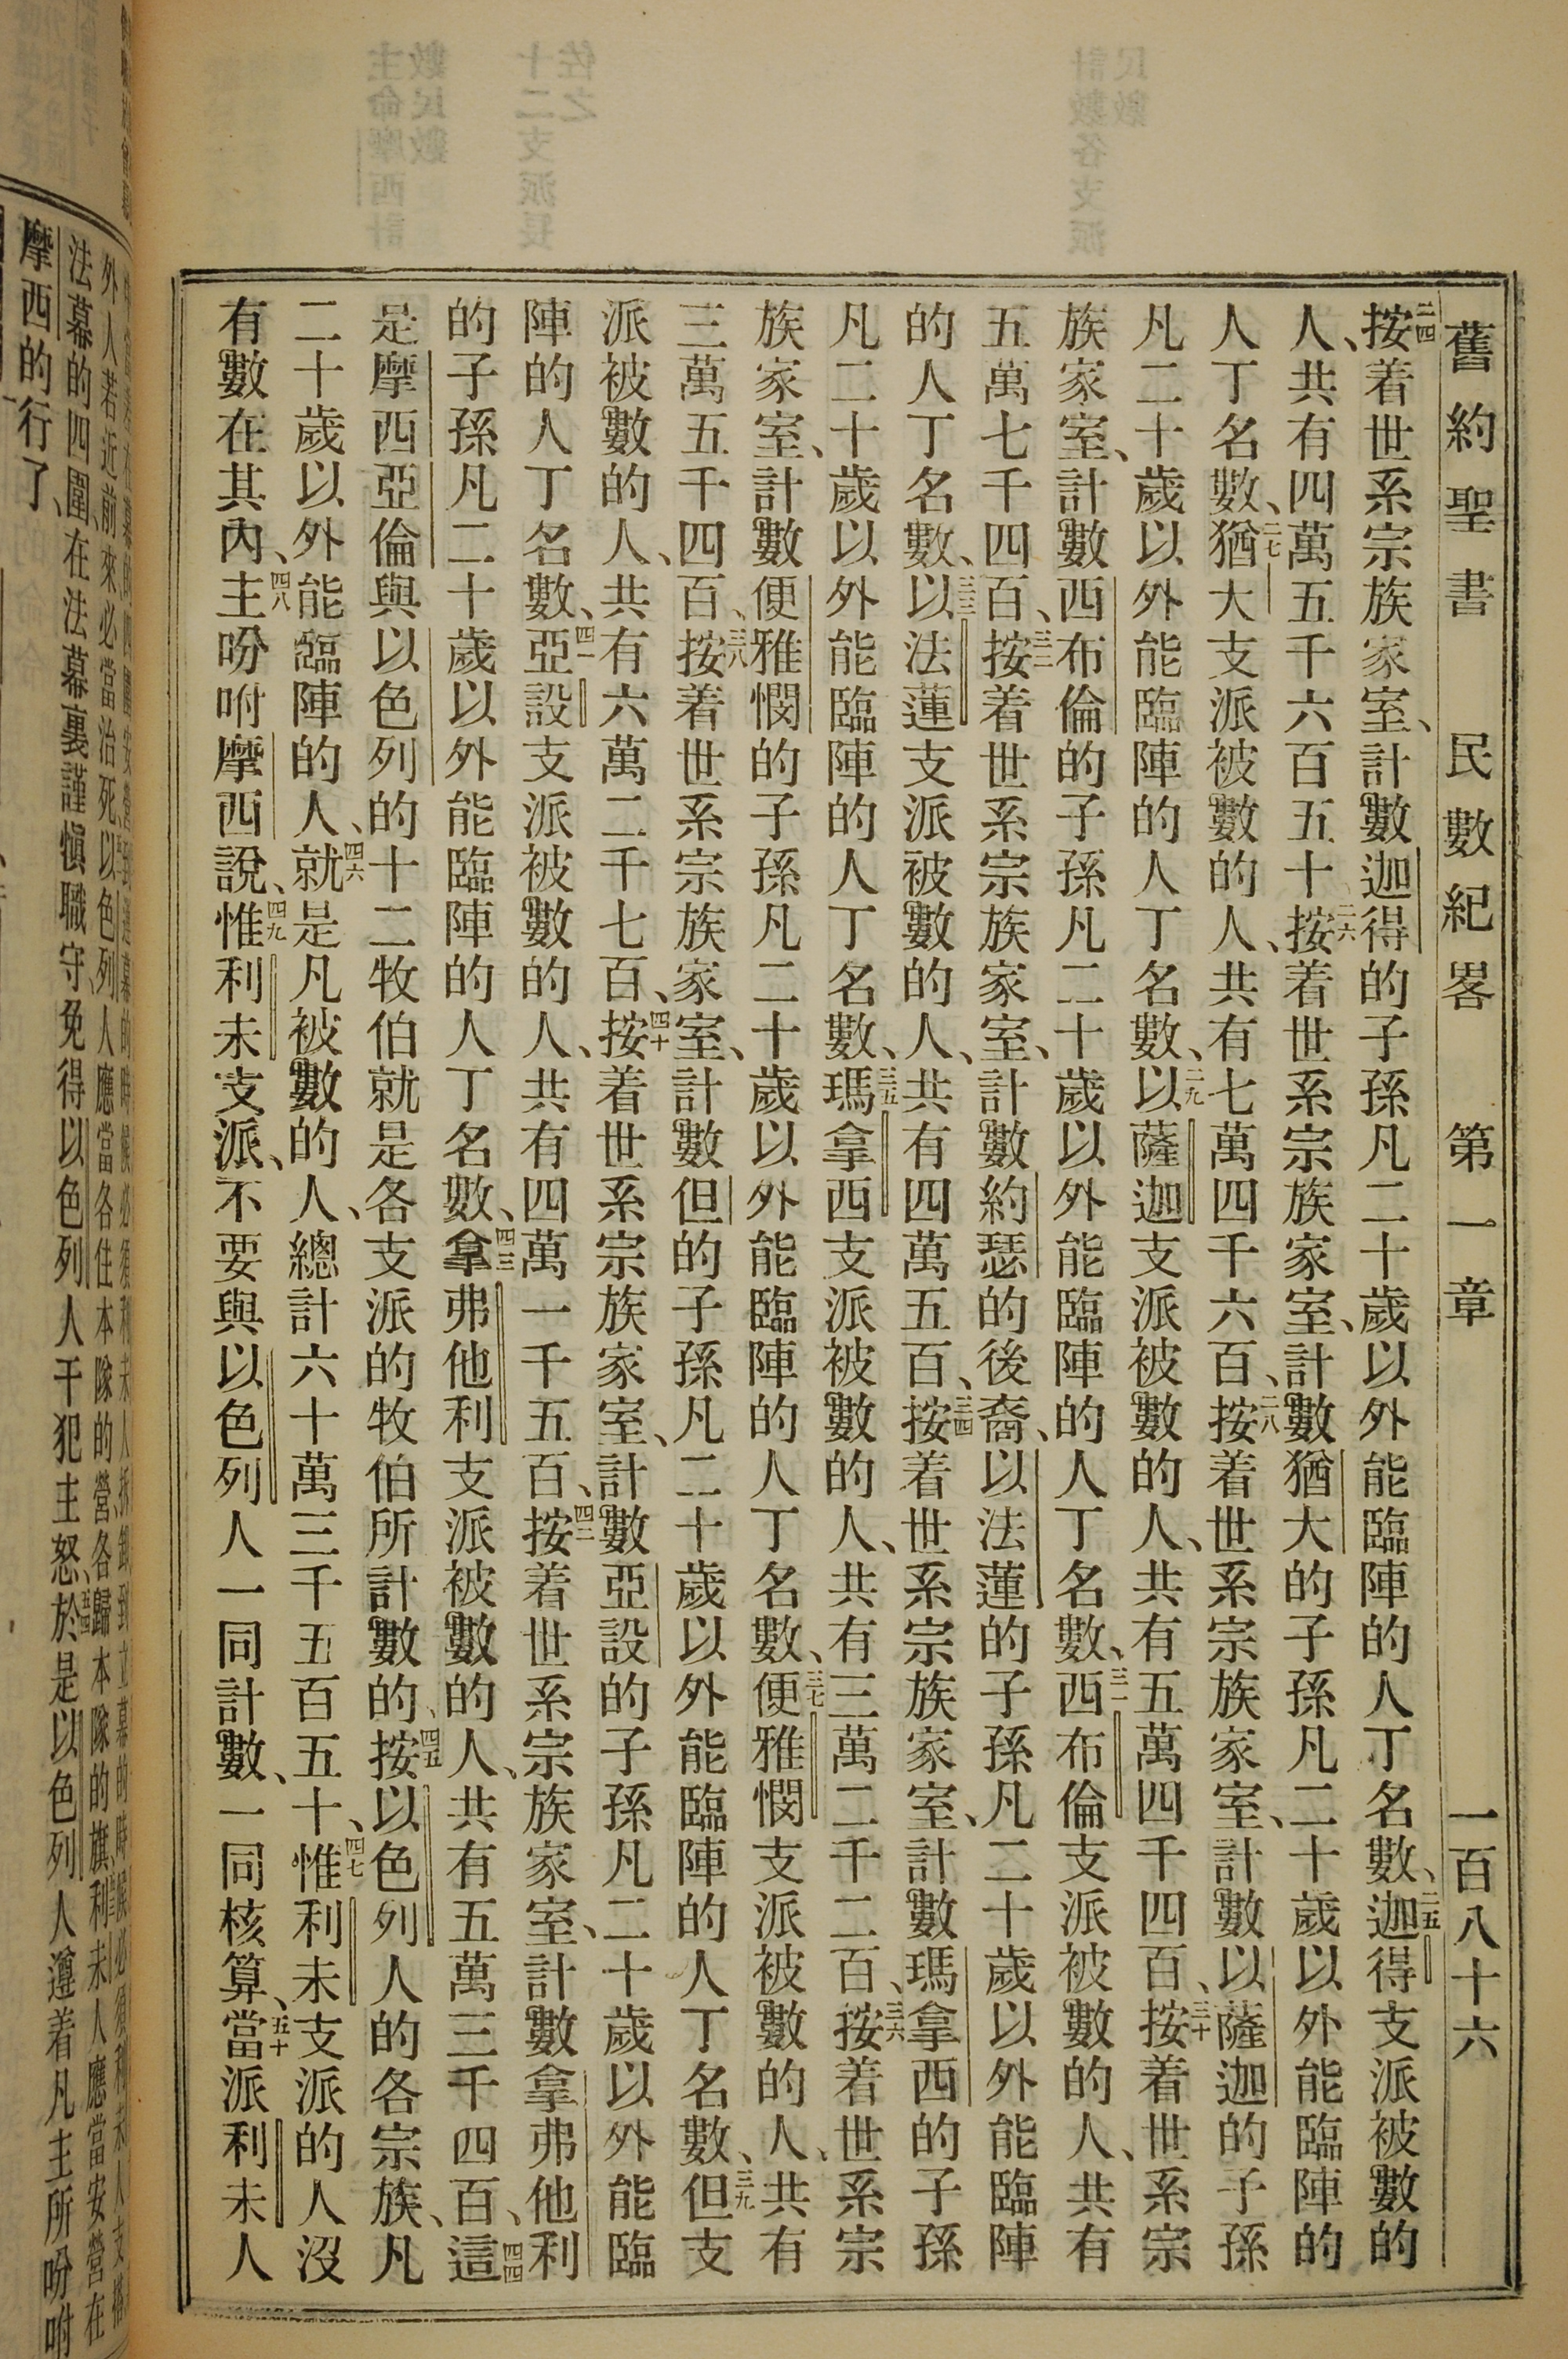 舊約聖書 民數紀畧 第一章 一百八十六
二四按着世系宗族家室、計數迦得的子孫凡二十歲以外能臨陣的人丁名數、二五迦得支派被數的
人、共有四萬五千六百五十、二六按着世系宗族家室、計數猶大的子孫凡二十歲以外能臨陣的
人丁名數、二七猶大支派被數的人、共有七萬四千六百、二八按着世系宗族家室、計數以薩迦的子孫
凡二十歲以外能臨陣的人丁名數、二九以薩迦支派被數的人、共有五萬四千四百、三十按着世系宗
族家室、計數西布倫的子孫凡二十歲以外能臨陣的人丁名數、三一西布倫支派被數的人、共有
五萬七千四百、三二按着世系宗族家室、計數約瑟的後裔、以法蓮的子孫凡二十歲以外能臨陣
的人丁名數、三三以法蓮支派被數的人、共有四萬五百、三四按着世系宗族家室、計數瑪拿西的子孫
凡二十歲以外能臨陣的人丁名數、三五瑪拿西支派被數的人、共有三萬二千二百、三六按着世系宗
族家室、計數便雅憫的子孫凡二十歲以外能臨陣的人丁名數、三七便雅憫支派被數的人、共有
三萬五千四百、三八按着世系宗族家室、計數但的子孫凡二十歲以外能臨陣的人丁名數、三九但支
派被數的人、共有六萬二千七百、四十按着世系宗族家室、計數亞設的子孫凡二十歲以外能臨
陣的人丁名數、四一亞設支派被數的人、共有四萬一千五百、四二按着世系宗族家室、計數拿弗他利
的子孫凡二十歲以外能臨陣的人丁名數、四三拿弗他利支派被數的人、共有五萬三千四百、四四這
是摩西亞倫與以色列的十二牧伯就是各支派的牧伯所計數的、四五按以色列人的各宗族、凡
二十歲以外能臨陣的人、四六就是凡被數的人、總計六十萬三千五百五十、四七惟利未支派的人沒
有數在其內、四八主吩咐摩西說、四九惟利未支派、不要與以色列人一同計數、一同核算、五十當派利未人
外人若近前來必當治死、以色列人應當各住本隊的營各歸本隊的旗、利未人應當安營在
法幕的四圍、在法幕裏謹愼職守、免得以色列人干犯主怒、於是以色列人遵着凡主所吩咐
摩西的行了、